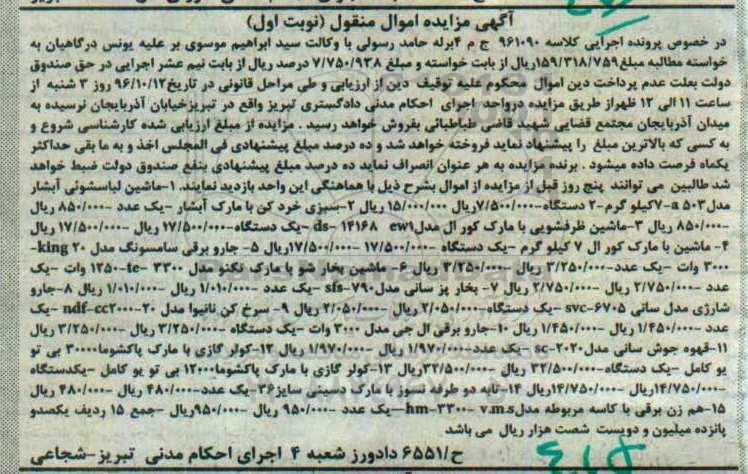 آگهی مزایده اموال منقول (نوبت اول)
در خصوص پرونده اجرایی کلاسه ۹۶۱۰۹۰ ج م ۴برله حامد رسولی با وکالت سید ابراهیم موسوی بر علیه یونس درگاهیان به
خواسته مطالبه مبلغ۱۵۹/۳۱۸/۷۵۹ریال از بابت خواسته و مبلغ ۷/۷۵۰/۹۳۸ درصد ریال از بابت نیم عشر اجرایی در حق صندوق
دولت بعلت عدم پرداخت دین اموال محکوم علیه توقیف دین از ارزیابی و طی مراحل قانونی در تاریخ۹۶/۱۰/۱۲ روز ۳ شنبه از
ساعت ۱۱ الی ۱۲ ظهراز طریق مزایده درواحد اجرای احکام مدنی دادگستری تبریز واقع در تبریزخیابان آذربایجان نرسیده به
میدان آذربایجان مجتمع قضایی شهید قاضی طباطبائی بفروش خواهد رسید . مزایده از مبلغ ارزیابی شده کارشناسی شروع و
به کسی که بالاترین مبلغ را پیشنهاد نماید فروخته خواهد شد و ده درصد مبلغ پیشنهادی فی المجلس اخذ و به ما بقی حداکثر
یکماه فرصت داده میشود . برنده مزایده به هر عنوان انصراف نماید ده درصد مبلغ پیشنهادی بنفع صندوق دولت ضبط خواهد
شد طالبین می توانند پنج روز قبل از مزایده از اموال بشرح ذیل با هماهنگی این واحد بازدید نمایند. ۱-ماشین لباسشوئی آبشار
مدل۵۰۳ a-۷کیلو گرم-۲ دستگاه-۷/۵۰۰/۰۰۰ریال ۱۵/۰۰۰/۰۰۰ ریال ۲-سبزی خرد کن با مارک آبشار -یک عدد -۸۵۰/۰۰۰ ریال
-۸۵۰/۰۰۰ ریال ۳-ماشین ظرفشویی با مارک کور ال مدلds- ۱۴۱۶۸ ew۱ -یک دستگاه-۱۷/۵۰۰/۰۰۰ ریال -۱۷/۵۰۰/۰۰۰ ریال
۴- ماشین با مارک کور ال ۷ کیلو گرم -یک دستگاه -۱۷/۵۰۰/۰۰۰ -۱۷/۵۰۰/۰۰۰ریال ۵- جارو برقی سامسونگ مدل king- ۲۰
۳۰۰۰ وات -یک عدد-۳/۲۵۰/۰۰۰ ریال -۳/۲۵۰/۰۰۰ ریال ۶- ماشین بخار شو با مارک تکنو مدل te- ۳۳۰۰-۱۲۵۰ وات -یک
عدد -۲/۷۵۰/۰۰۰ ریال -۲/۷۵۰/۰۰۰ ریال ۷- بخار پز سانی مدل sfs-۷۹۰ -یک عدد -۱/۰۱۰/۰۰۰ ریال -۱/۰۱۰/۰۰۰ ریال ۸-جارو
شارژی مدل سانی svc-۶۷۰۵ -یک دستگاه-۲/۰۵۰/۰۰۰ ریال -۲/۰۵۰/۰۰۰ ریال ۹- سرخ کن نانیوا مدل ndf-cc۲۰۰۰-۲۰ -یک
عدد -۱/۴۵۰/۰۰۰ ریال -۱/۴۵۰/۰۰۰ ریال ۱۰-جارو برقی ال جی مدل ۳۰۰۰ وات -یک دستگاه -۳/۲۵۰/۰۰۰ ریال -۳/۲۵۰/۰۰۰ ریال
۱۱-قهوه جوش سانی مدل sc-۲۰۲۰ -یک عدد-۱/۹۷۰/۰۰۰ ریال -۱/۹۷۰/۰۰۰ ریال ۱۲-کولر گازی با مارک پاکشوما۳۰۰۰۰ بی تو
یو کامل -یک دستگاه-۳۲/۵۰۰/۰۰۰ ریال -۳۲/۵۰۰/۰۰۰ریال ۱۳-کولر گازی با مارک پاکشوما۱۲۰۰۰ بی تو یو کامل -یکدستگاه
-۱۴/۷۵۰/۰۰۰ریال -۱۴/۷۵۰/۰۰۰ریال ۱۴-تابه دو طرفه نسوز با مارک دسینی سایز۳۶-یک عدد-۴۸۰/۰۰۰ ریال -۴۸۰/۰۰۰ ریال
۱۵-هم زن برقی با کاسه مربوطه مدلhm-۳۳۰۰- v.m.s -یک عدد -۹۵۰/۰۰۰ ریال -۹۵۰/۰۰۰ریال -جمع ۱۵ ردیف یکصدو
پانزده میلیون و دویست شصت هزار ریال می باشد
ح/۶۵۵۱ دادورز شعبه ۴ اجرای احکام مدنی تبریز-شجاعی